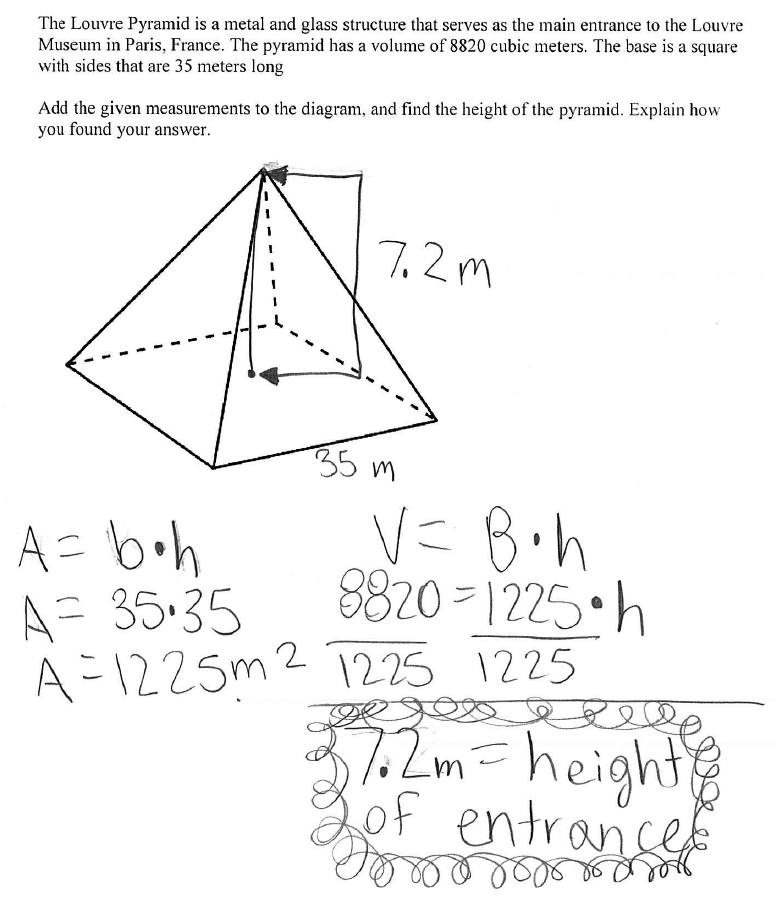 The Louvre Pyramid is a metal and glass structure that serves as the main entrance to the Louvre
Museum in Paris, France. The pyramid has a volume of 8820 cubic meters. The base is a square
with sides that are 35 meters long
Add the given measurements to the diagram, and find the height of the pyramid. Explain how
you found your answer.
7.2m
35 m
A = b•h
A = 35•35
A = 1225m²
V = B•h
8820 = 1225•h
1225 1225
7.2m = height
of entrance